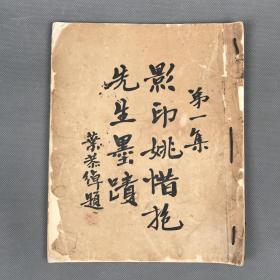 第一集
影印姚惜抱
先生墨蹟
葉恭綽題